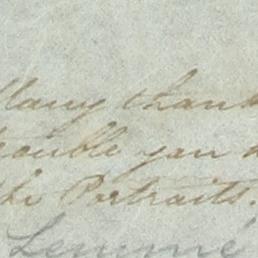 Many thank
trouble you
the Portraits.
Lemmé